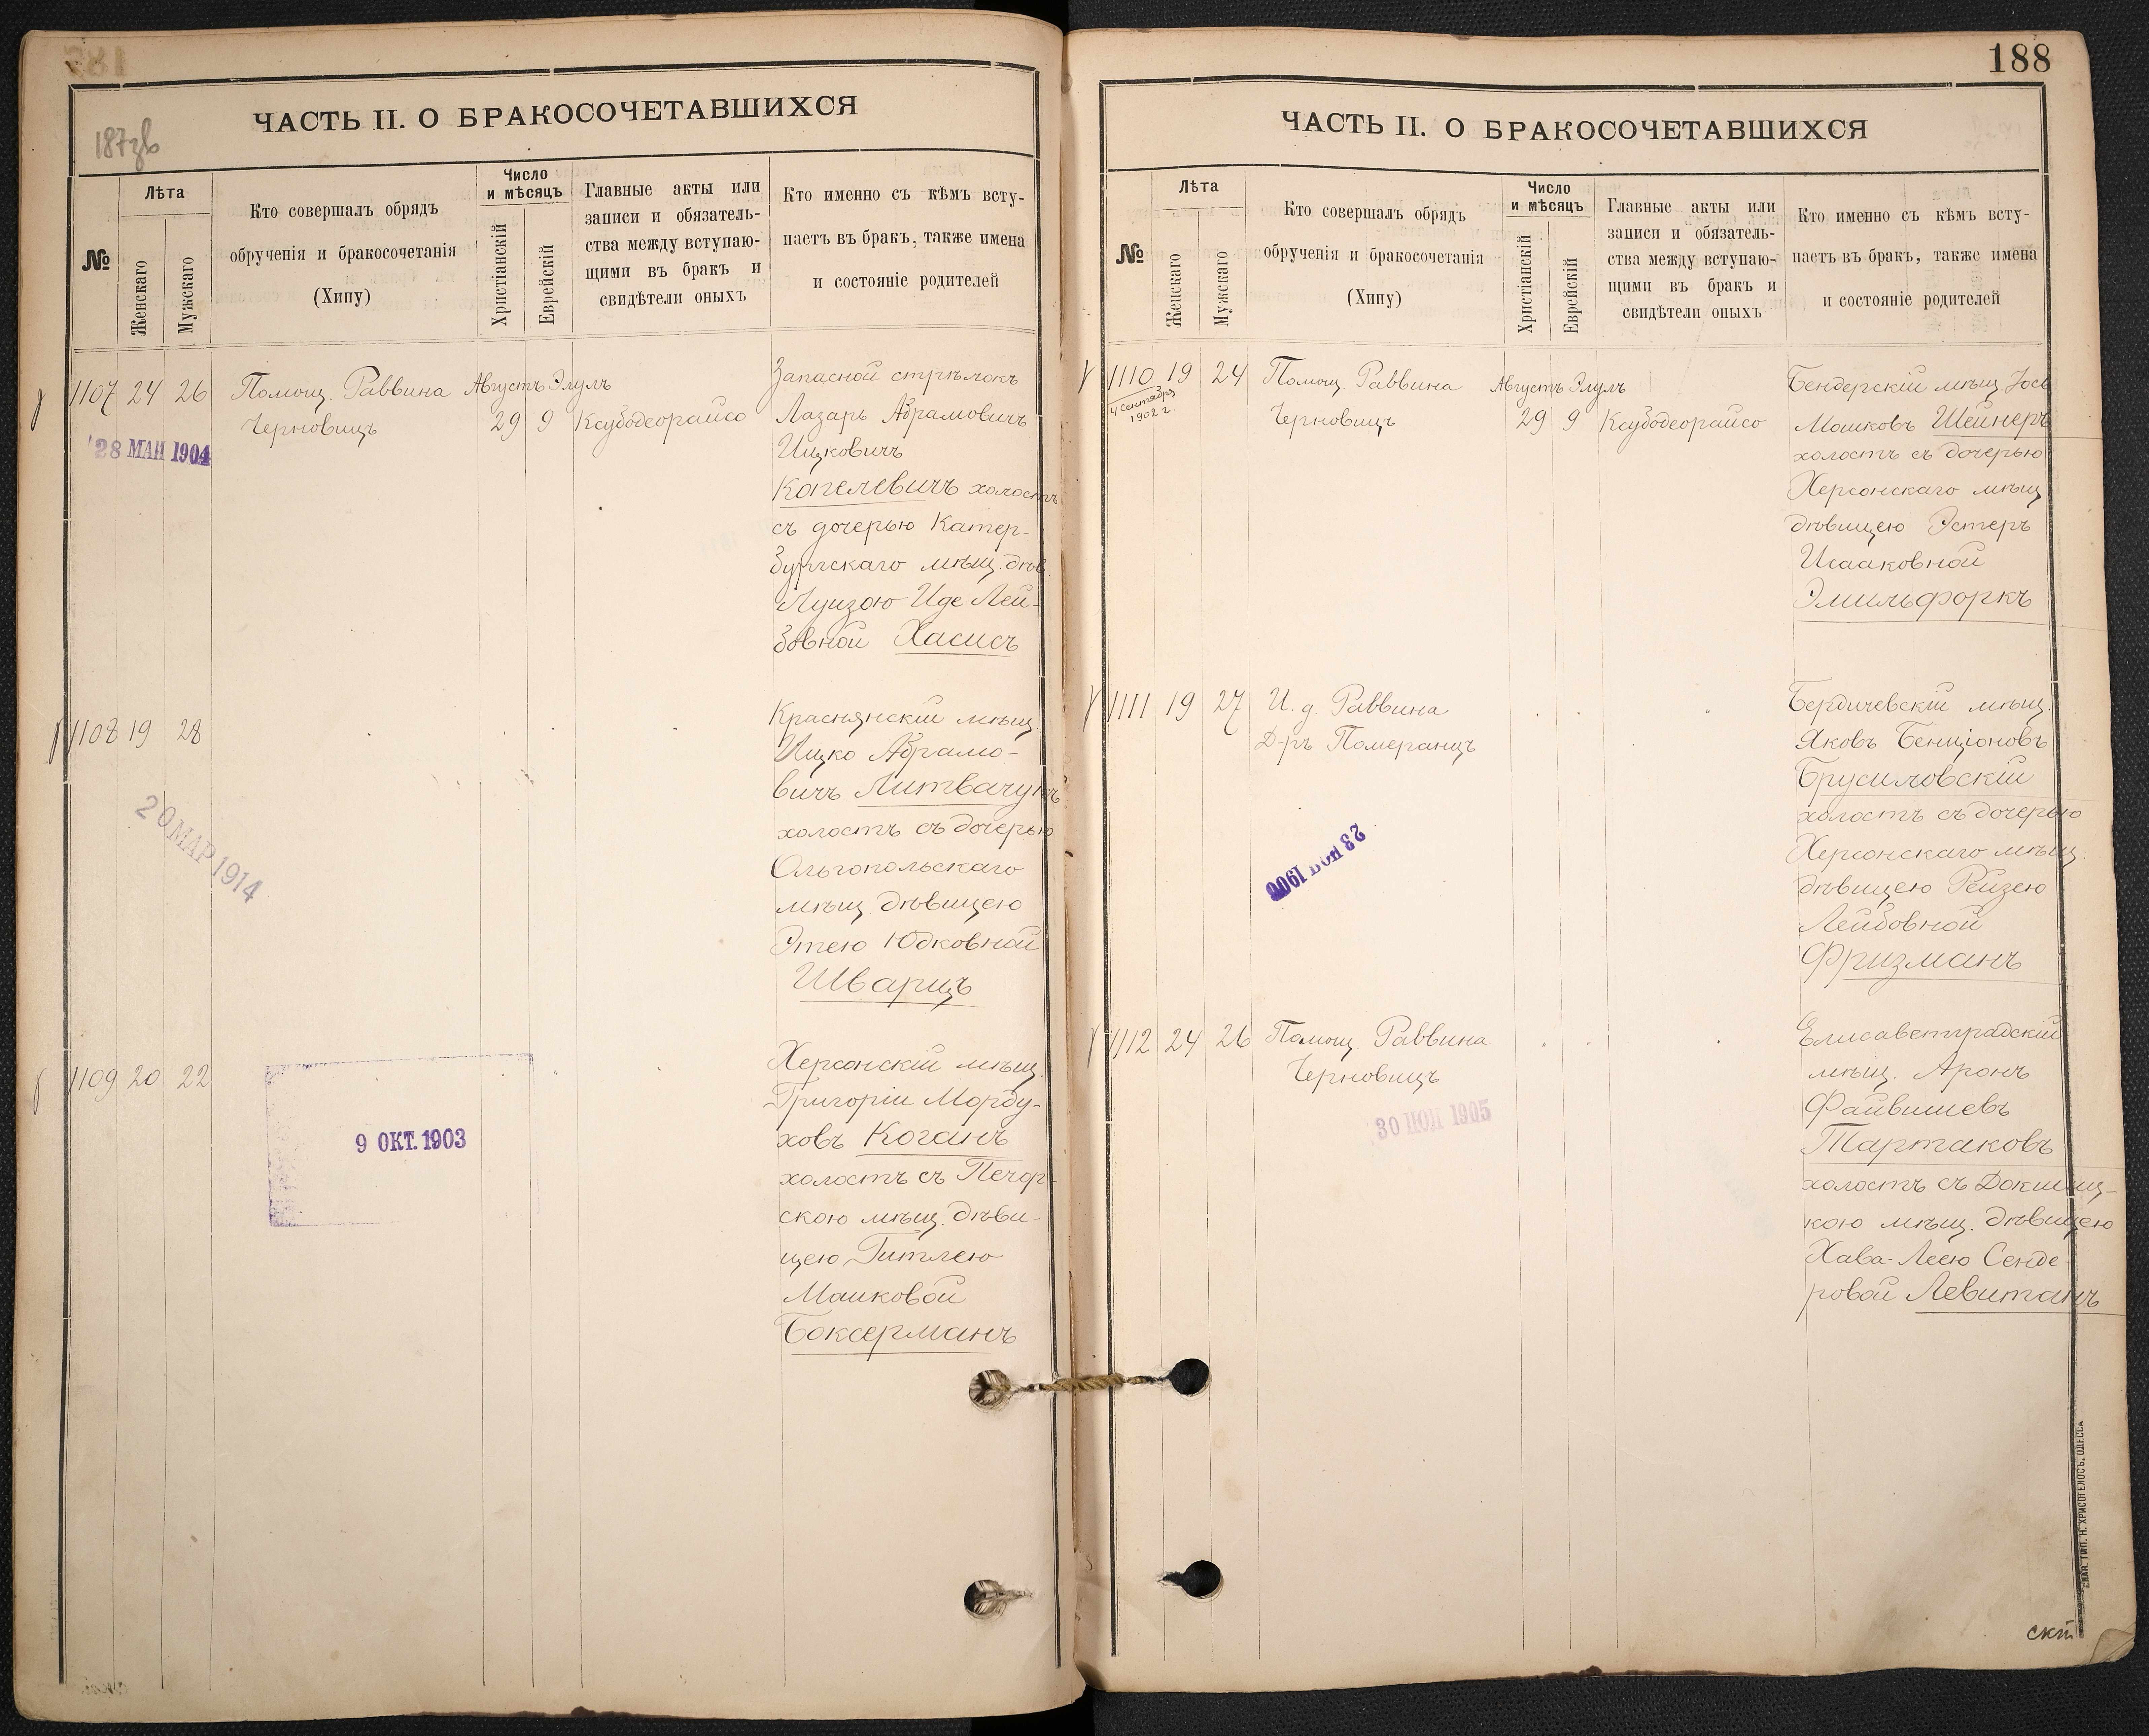 ЧАСТЬ II. О БРАКОСОЧЕТАВШИХСЯ
187зв
№
Лѣта
Женскаго
Мужскаго
Кто совершалъ обрядъ
обрученія и бракосочетанія
(Хипу)
Число
и мѣсяцъ
Христіанскій
Еврейскій
Главные акты или
записи и обязатель-
ства между вступаю-
щими въ бракъ и
свидѣтели оныхъ
Кто именно съ кѣмъ всту-
паетъ въ бракъ, также имена
и состояніе родителей
1107 24 26 Помощ. Раввина Августъ Элулъ
Черновицъ 29 9 Ксубодеорайсо
28 МАЙ 1904
Запасной стрѣлокъ
Лазарь Абрамовичъ
Ицковичъ
Копелевичъ холостъ
съ дочерью Катер-
бургскаго мѣщ. дѣв.
Луизою Иде Лей-
зовной Хасисъ
1108 19 28
20 МАР 1914
Краснянскій мѣщ.
Ицко Абрамо-
вичъ Литвачукъ
холостъ съ дочерью
Ольгопольскаго
мѣщ. дѣвицею
Этею Юдковной
Шварцъ
1109 20 22
9 ОКТ. 1903
Херсонскій мѣщ.
Григорій Морду-
ховъ Коганъ
холостъ съ Печор-
скою мѣщ. дѣви-
цею Гитлею
Машковой
Боксерманъ
188
ЧАСТЬ II. О БРАКОСОЧЕТАВШИХСЯ
№
Лѣта
Женскаго
Мужскаго
Кто совершалъ обрядъ
обрученія и бракосочетанія
(Хипу)
Число
и мѣсяцъ
Христіанскій
Еврейскій
Главные акты или
записи и обязатель-
ства между вступаю-
щими въ бракъ и
свидѣтели оныхъ
Кто именно съ кѣмъ всту-
паетъ въ бракъ, также имена
и состояніе родителей
1110 19 24 Помощ. Раввина Августъ Элулъ
4 сентября
1902 г.
Черновицъ 29 9 Ксубодеорайсо
Бендерскій мѣщ. Іось
Мошковъ Шейнеръ
холостъ съ дочерью
Херсонскаго мѣщ.
дѣвицею Эстеръ
Исааковной
Эмильфоркъ
1111 19 27 И. д. Раввина
Д-ръ Померанцъ
Бердичевскій мѣщ.
Яковъ Бенціоновъ
Брусиловскій
холостъ съ дочерью
Херсонскаго мѣщ.
дѣвицею Рейзею
Лейбовной
Фризманъ
1112 24 26 Помощ. Раввина
Черновицъ
30 1905
Елисаветградскій
мѣщ. Аронъ
Файвишевъ
Тартаковъ
холостъ съ Докшиц-
кою мѣщ. дѣвицею
Хава-Леею Сенде-
ровой Левитанъ
СЛАВ. ТИП. Н. ХРИСОГЕЛОСЪ, ОДЕССА